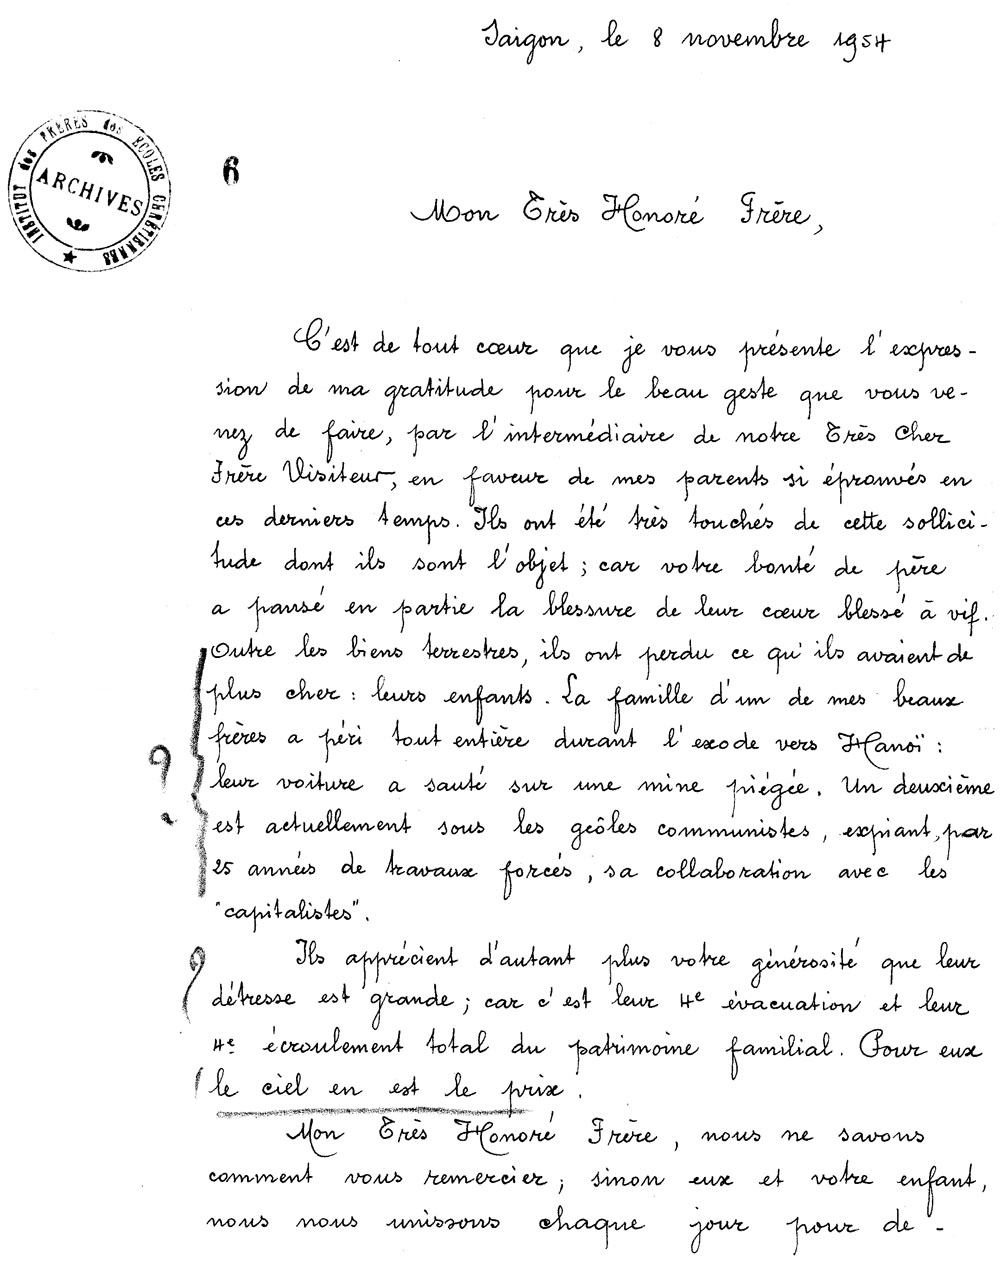 Saigon, le 8 novembre 1954
INSTITUT des FRÈRES des ECOLES CHRÉTIENNES
ARCHIVES
6
Mon Très Honoré Frère,
C'est de tout cœur que je vous présente l'expres-
sion de ma gratitude pour le beau geste que vous ve-
nez de faire, par l'intermédiaire de notre Très Cher
Frère Visiteur, en faveur de mes parents si éprouvés en
ces derniers temps. Ils ont été très touchés de cette sollici-
tude dont ils sont l'objet ; car votre bonté de père
a pansé en partie la blessure de leur cœur blessé à vif.
Outre les biens terrestres, ils ont perdu ce qu'ils avaient de
plus cher : leurs enfants. La famille d'un de mes beaux
frères a péri tout entière durant l'exode vers Hanoï :
?
leur voiture a sauté sur une mine piégée. Un deuxième
est actuellement sous les geôles communistes, expiant, par
25 années de travaux forcés, sa collaboration avec les
"capitalistes".
Ils apprécient d'autant plus votre générosité que leur
détresse est grande ; car c'est leur 4e évacuation et leur
4e écroulement total du patrimoine familial. Pour eux
le ciel en est le prix.
Mon Très Honoré Frère, nous ne savons
comment vous remercier ; sinon eux et votre enfant,
nous nous unissons chaque jour pour de-